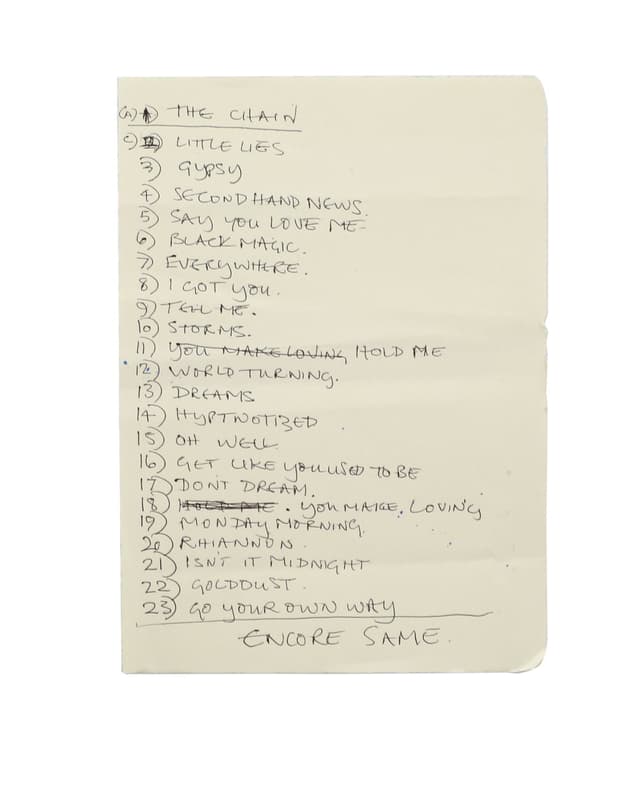 (A) 1) THE CHAIN
C) 2) LITTLE LIES
3) GYPSY
4) SECOND HAND NEWS.
5) SAY YOU LOVE ME
6) BLACK MAGIC.
7) EVERYWHERE.
8) I GOT YOU.
9) TELL ME.
10) STORMS.
11) YOU MAKE LOVING HOLD ME
12) WORLD TURNING.
13) DREAMS
14) HYPTNOTIZED
15) OH WELL
16) GET LIKE YOU USED TO BE
17) DON'T DREAM.
18) HOLD ME. YOU MAKE, LOVING
19) MONDAY MORNING.
20) RHIANNON.
21) ISN'T IT MIDNIGHT
22) GOLDDUST.
23) GO YOUR OWN WAY
ENCORE SAME.